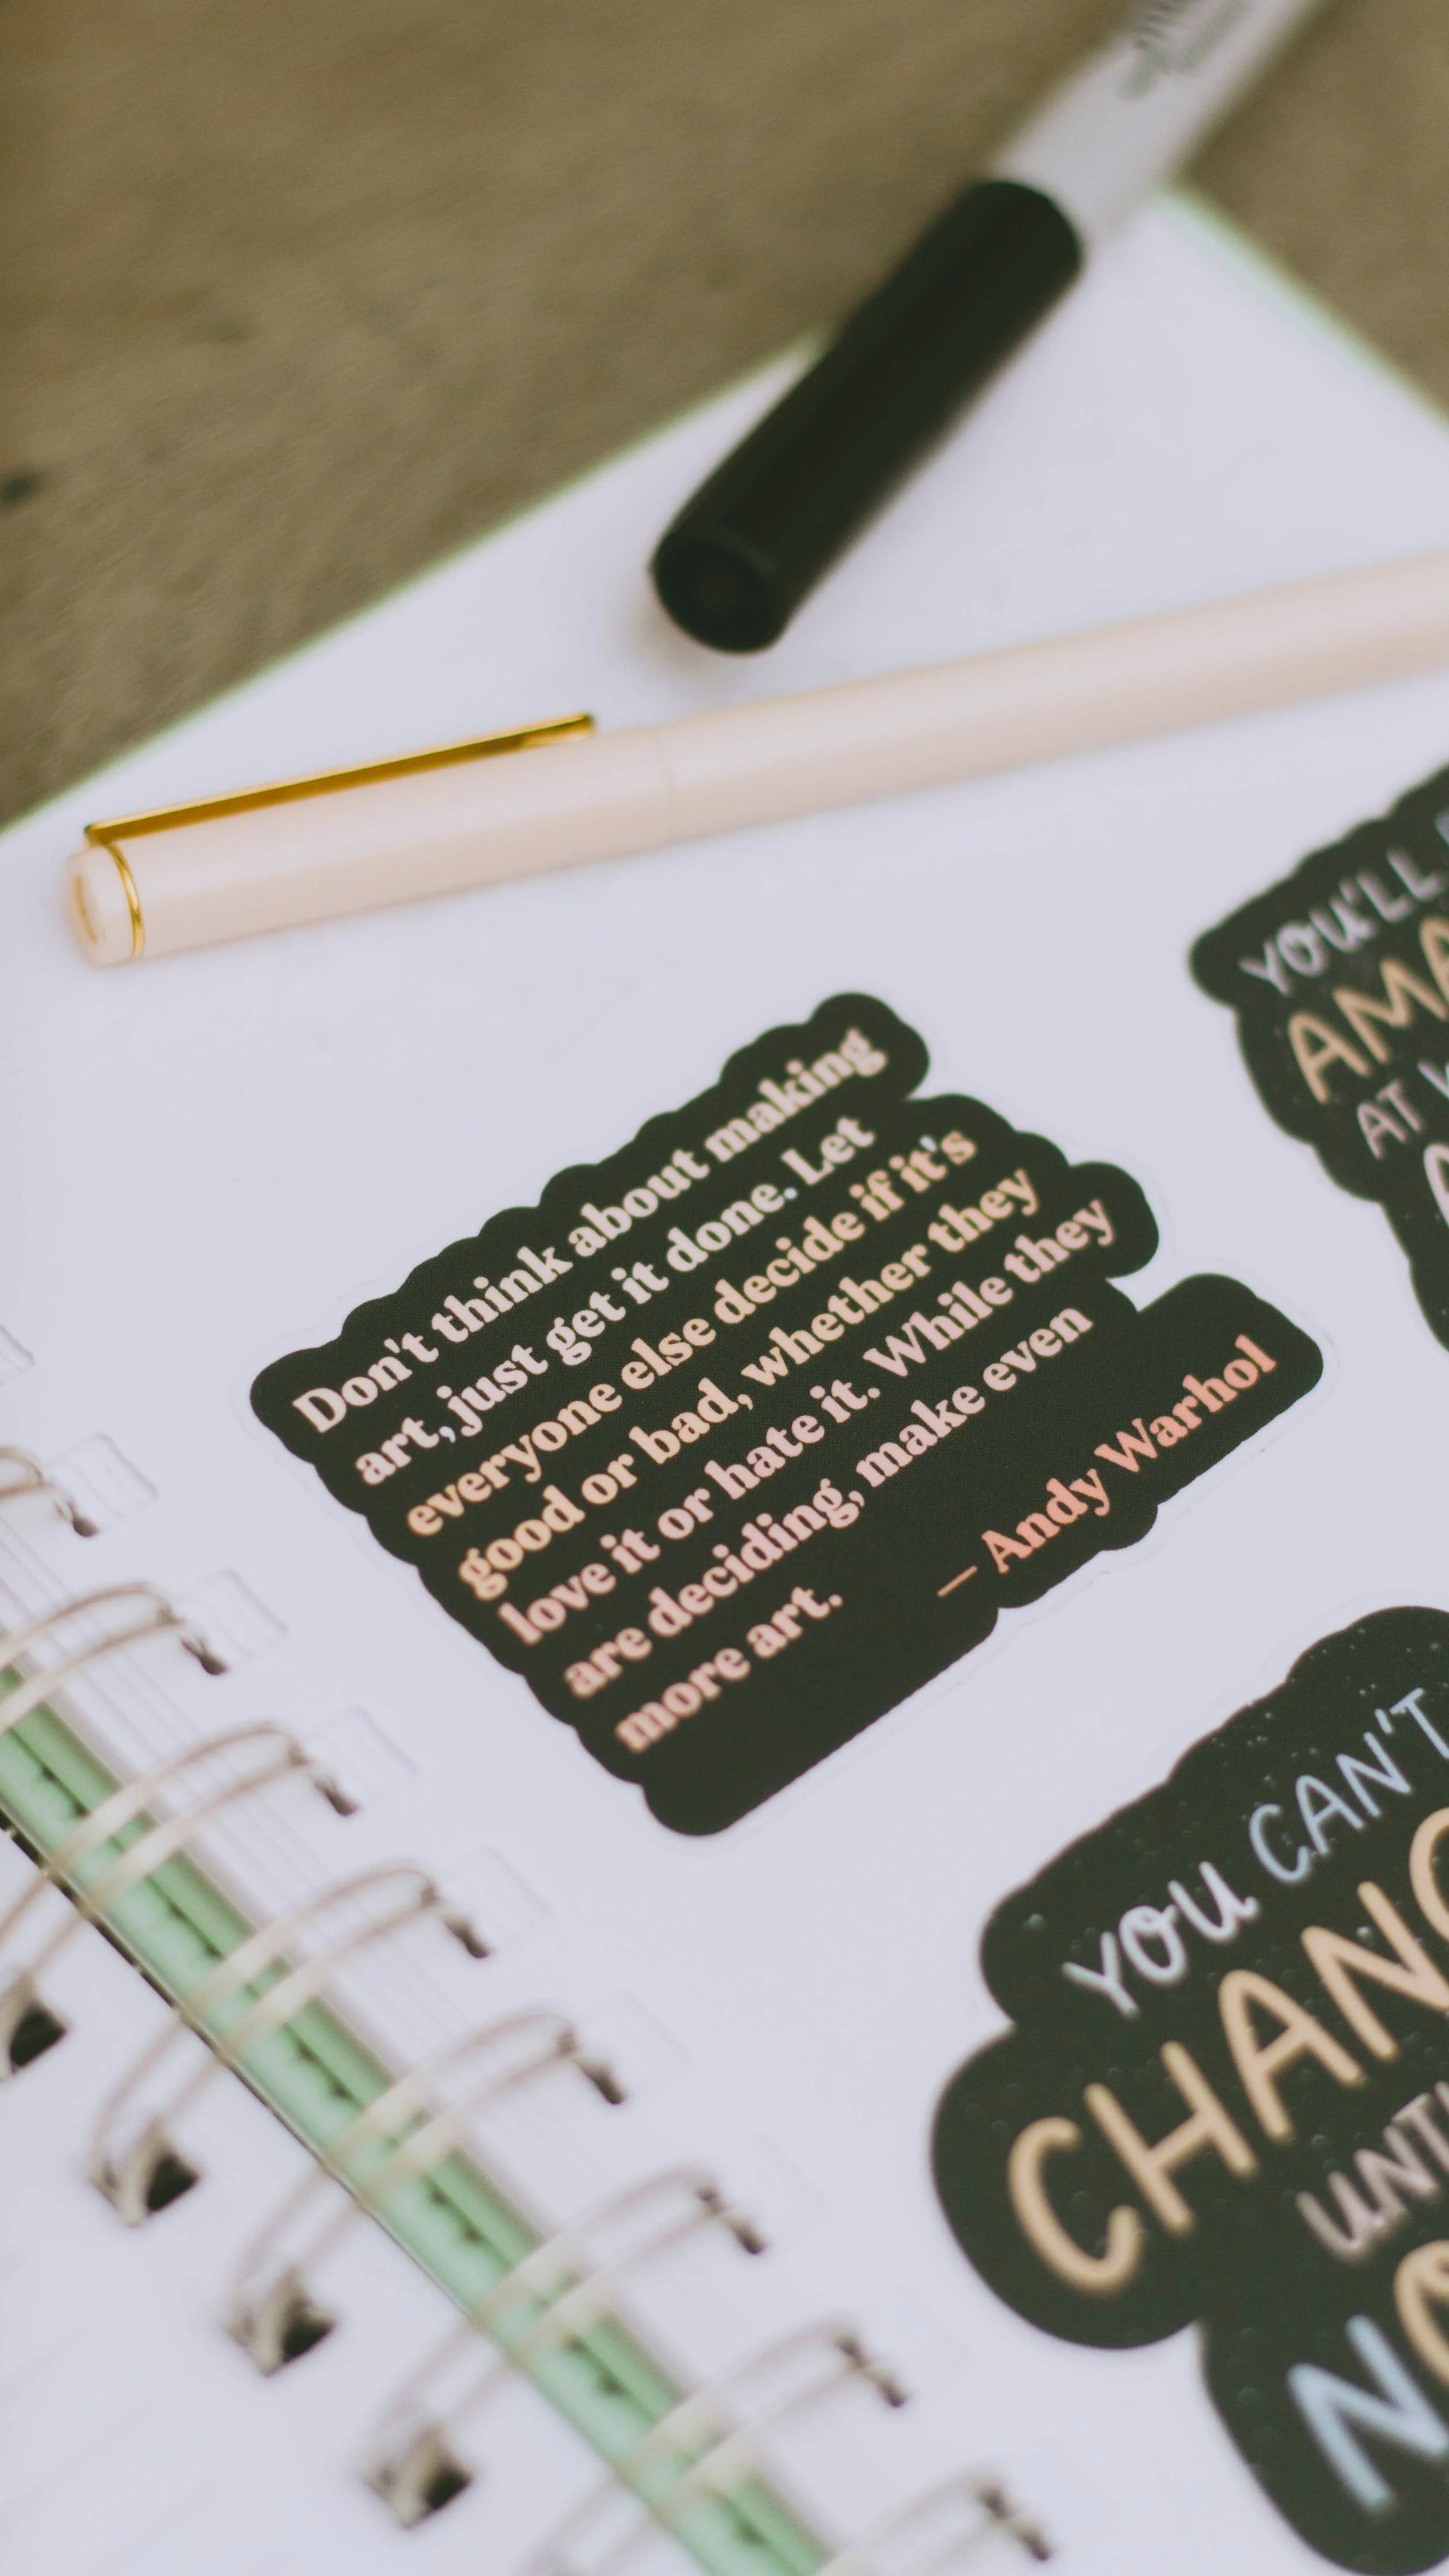 Don't think about making
art, just get it done. Let
everyone else decide if it's
good or bad, whether they
love it or hate it. While they
are deciding, make even
more art.
— Andy Warhol
YOU'LL
AT
YOU CAN'T